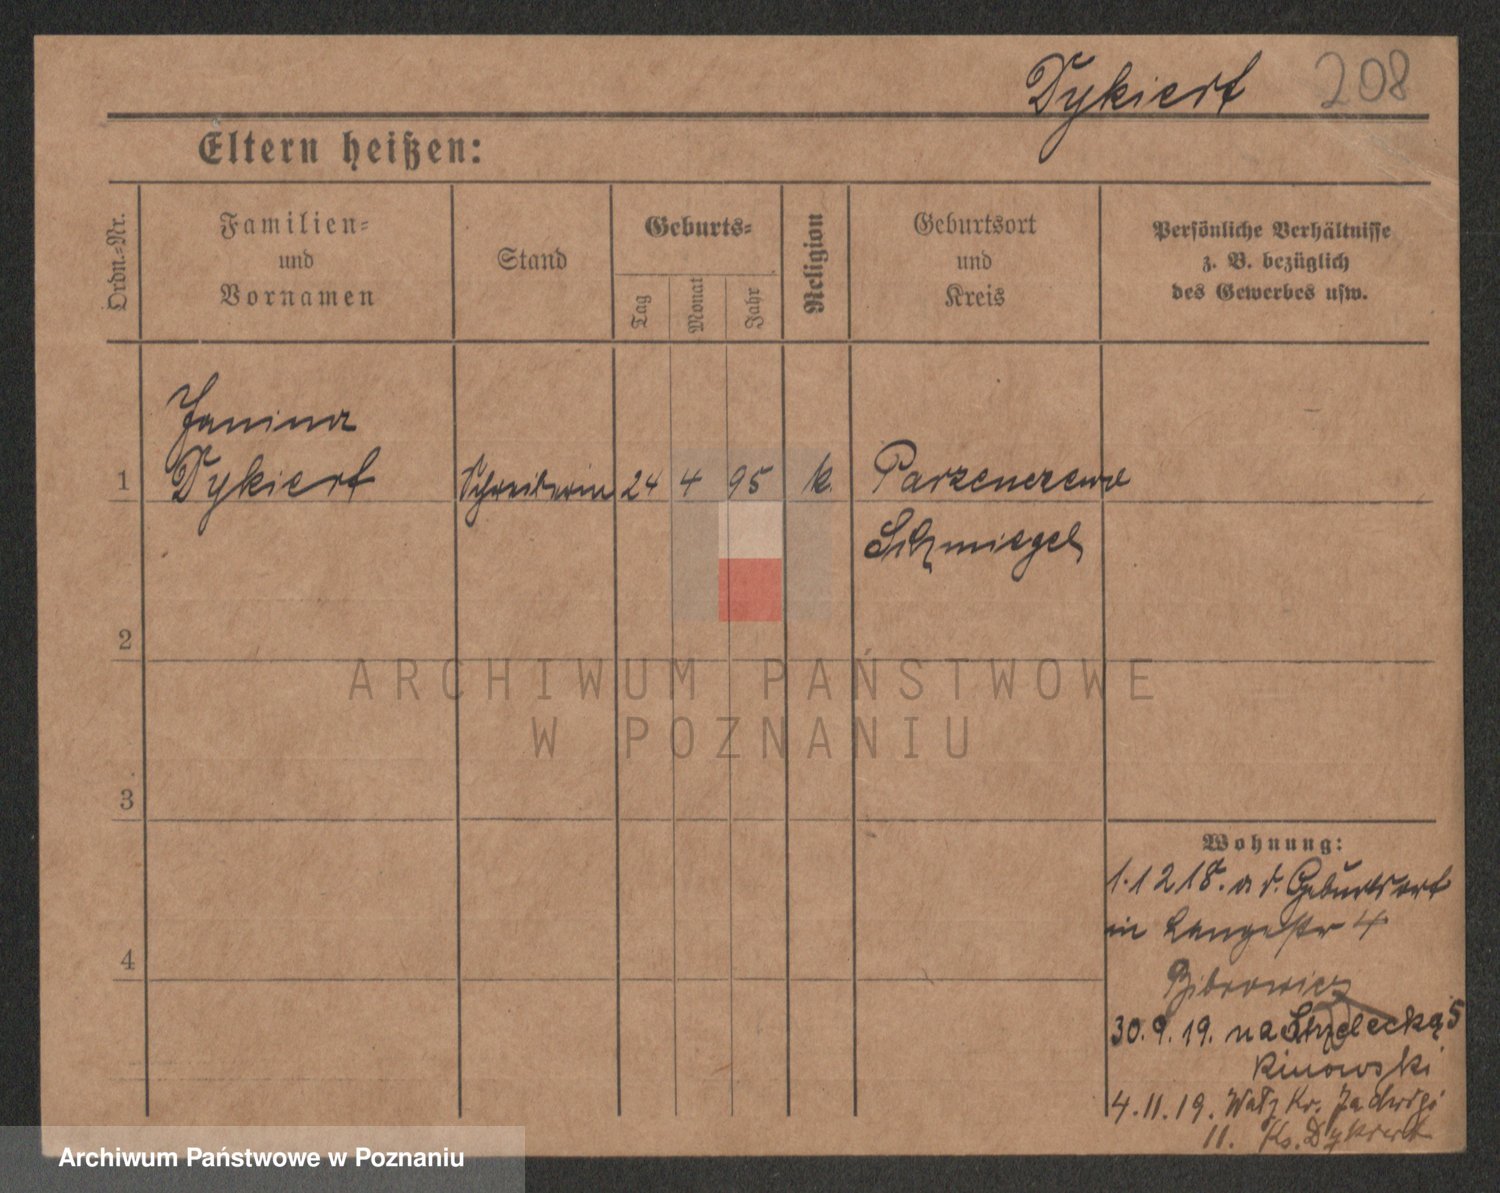 Dykiert 208
Eltern heißen:
Ordn.-Nr.
Familien-
und
Vornamen
Stand
Geburts-
Tag
Monat
Jahr
Religion
Geburtsort
und
Kreis
Persönliche Verhältnisse
z. B. bezüglich
des Gewerbes usw.
Janina
1 Dykiert Schreiberin 24 4 95 k. Parzenczewo
Schmiegel
2
3
4
ARCHIWUM PAŃSTWOWE
W POZNANIU
Wohnung:
1.12 18. a d. Geburtsort
in Langestr 4
Bibrowicz
30.9.19. na Strzelecką 5
Kinowski
4.11.19. Kr. Jadwigi
11. Dykiert
Archiwum Państwowe w Poznaniu